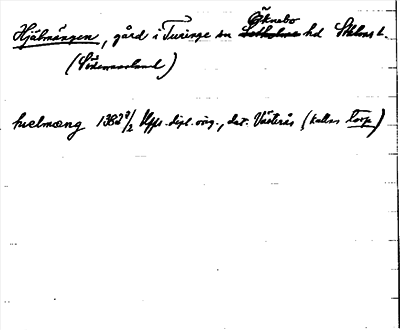 Öknebo
Hjälmängen, gård i Turinge sn hd Sthlms l.
(Södermanland)
hielmæng 1382 9/2 Upps. dipl. orig., dat. Västerås (kallas torp)